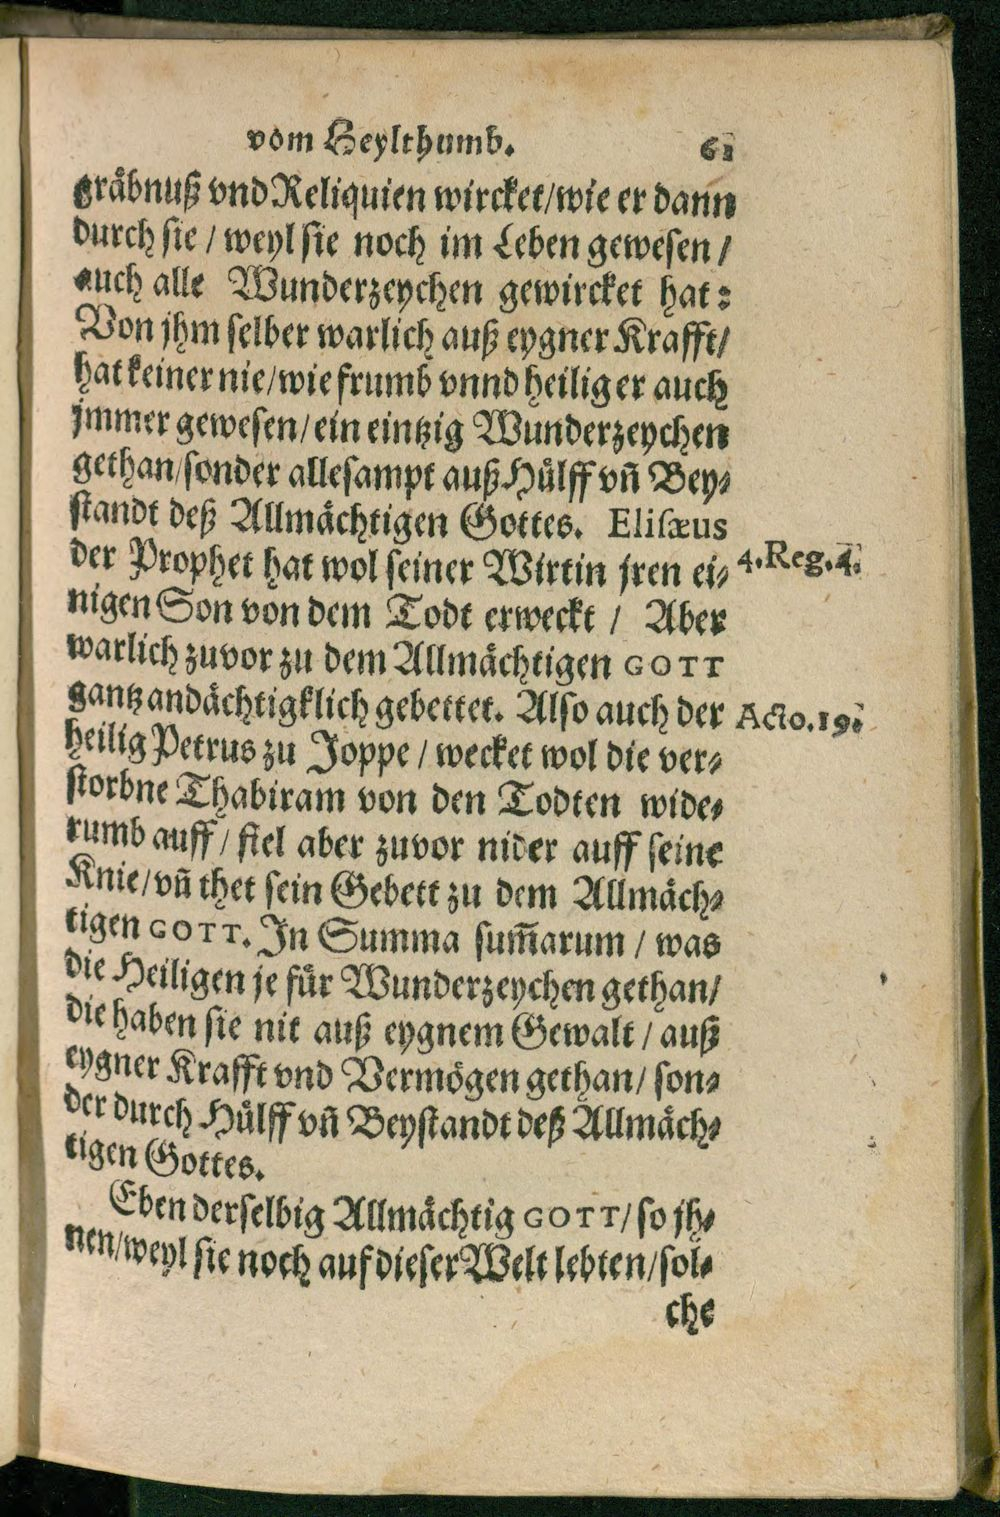 vom Heylthumb. 61
gräbnuß vnd Reliquien wircket/wie er dann
durch sie / weyl sie noch im Leben gewesen /
auch alle Wunderzeychen gewircket hat:
Von jhm selber warlich auß eygner Krafft/
hat keiner nie/wie frumb vnnd heilig er auch
jmmer gewesen/ein eintzig Wunderzeychen
gethan/sonder allesampt auß Hülff vñ Bey⸗
standt deß Allmächtigen Gottes. Elisæus
der Prophet hat wol seiner Wirtin jren ei⸗ 4.Reg.4.
nigen Son von dem Todt erweckt / Aber
warlich zuvor zu dem Allmächtigen GOTT
gantz andächtigklich gebettet. Also auch der Acto.19.
heilig Petrus zu Joppe / wecket wol die ver⸗
storbne Thabiram von den Todten wide⸗
rumb auff / fiel aber zuvor nider auff seine
Knie/vñ thet sein Gebett zu dem Allmäch⸗
tigen GOTT. In Summa sum̃arum / was
die Heiligen je für Wunderzeychen gethan/
die haben sie nit auß eygnem Gewalt / auß
eygner Krafft vnd Vermögen gethan/ son⸗
der durch Hülff vñ Beystandt deß Allmäch⸗
tigen Gottes.
Eben derselbig Allmächtig GOTT/ so jh⸗
nen/weyl sie noch auf dieser Welt lebten/sol⸗
che